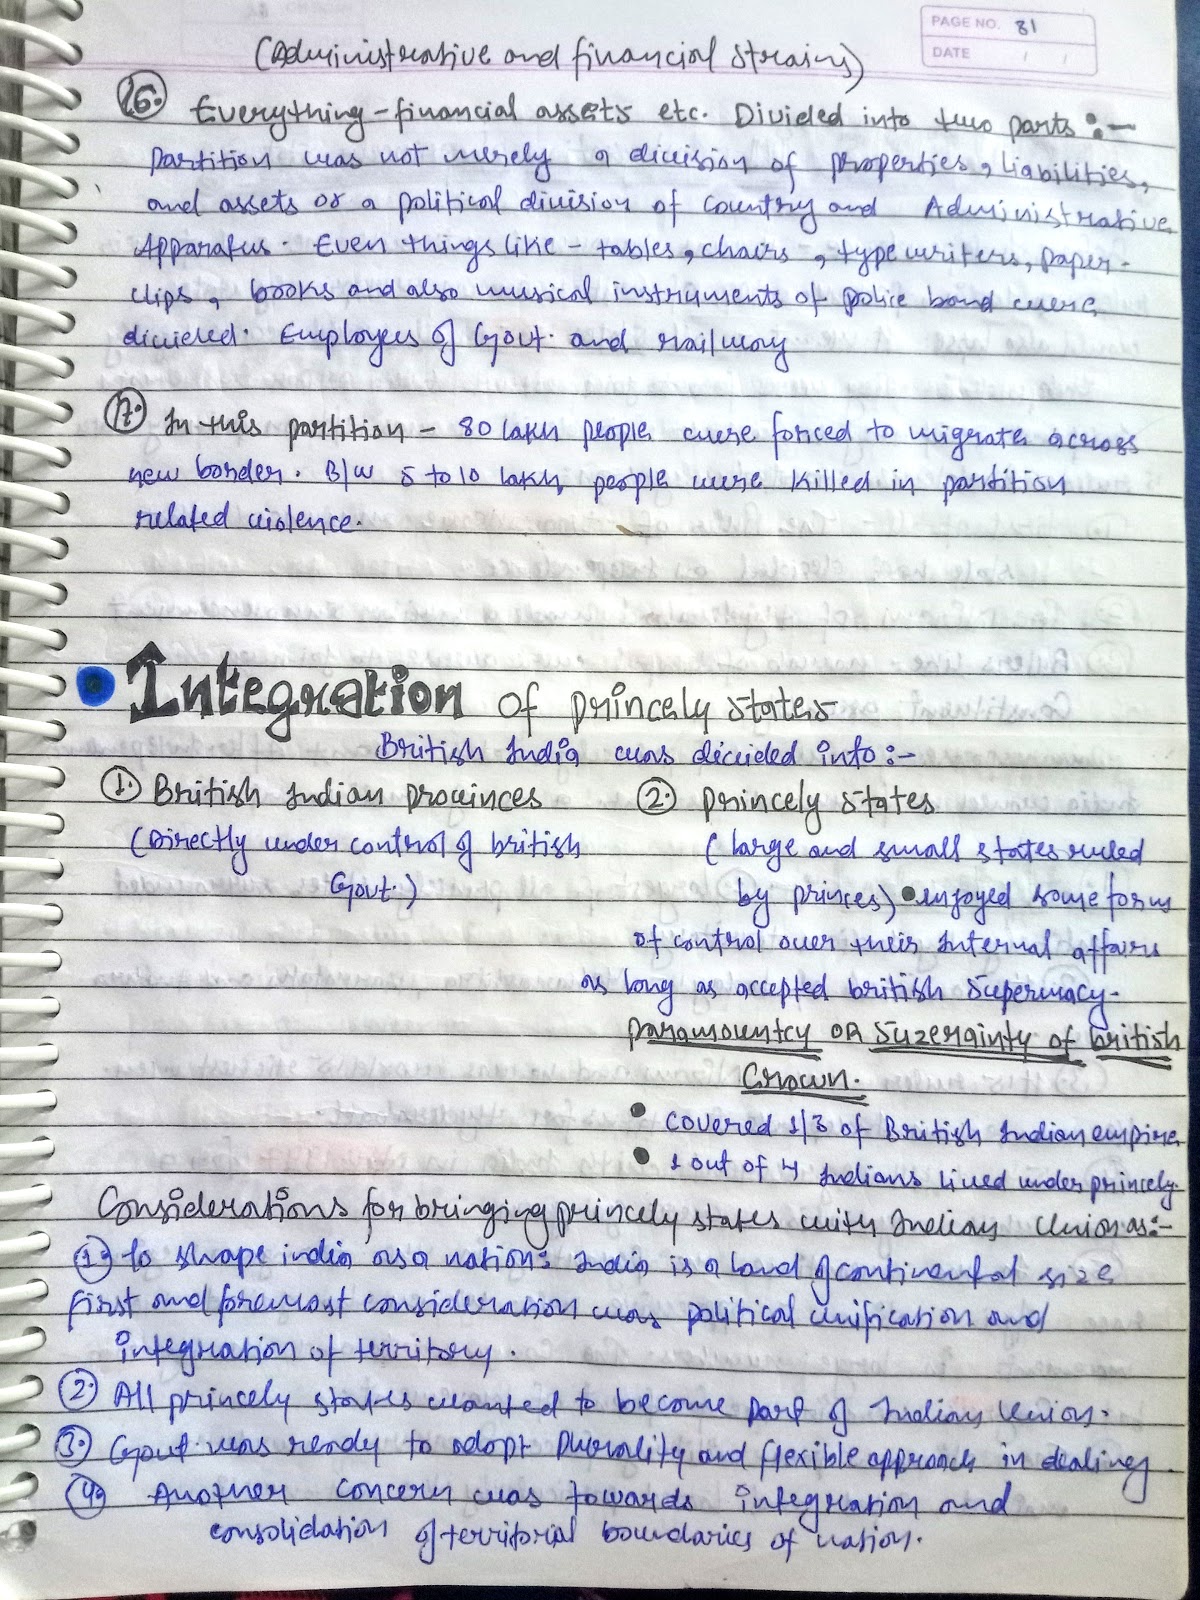 PAGE NO. 81
DATE / /
(Administrative and financial strains)
16. Everything - financial assets etc. Divided into two parts :-
Partition was not merely a division of properties, liabilities,
and assets or a political division of country and Administrative
Apparatus. Even things like - tables, chairs, type writers, paper-
clips, books and also musical instruments of police band were
divided. Employees of Govt. and railway
17. In this partition - 80 lakh people were forced to migrate across
new border. B/W 5 to 10 lakh people were killed in partition
related violence.
Integration of princely states
British India was divided into :-
1. British Indian provinces
(Directly under control of british
Govt.)
2. princely states
(large and small states ruled
by princes) • enjoyed some form
of control over their internal affairs
as long as accepted british supermacy.
paramountcy OR Suzerainty of british
Crown.
• covered 1/3 of British Indian empire
• 1 out of 4 Indians lived under princely.
Considerations for bringing princely states with Indian Union as:-
1. to shape india as a nation: India is a land of continental size
first and foremost consideration was political unification and
integration of territory.
2. All princely states wanted to become part of Indian Union.
3. Govt. was ready to adopt plurality and flexible approach in dealing.
4. Another concern was towards integration and
consolidation of territorial boundaries of nation.